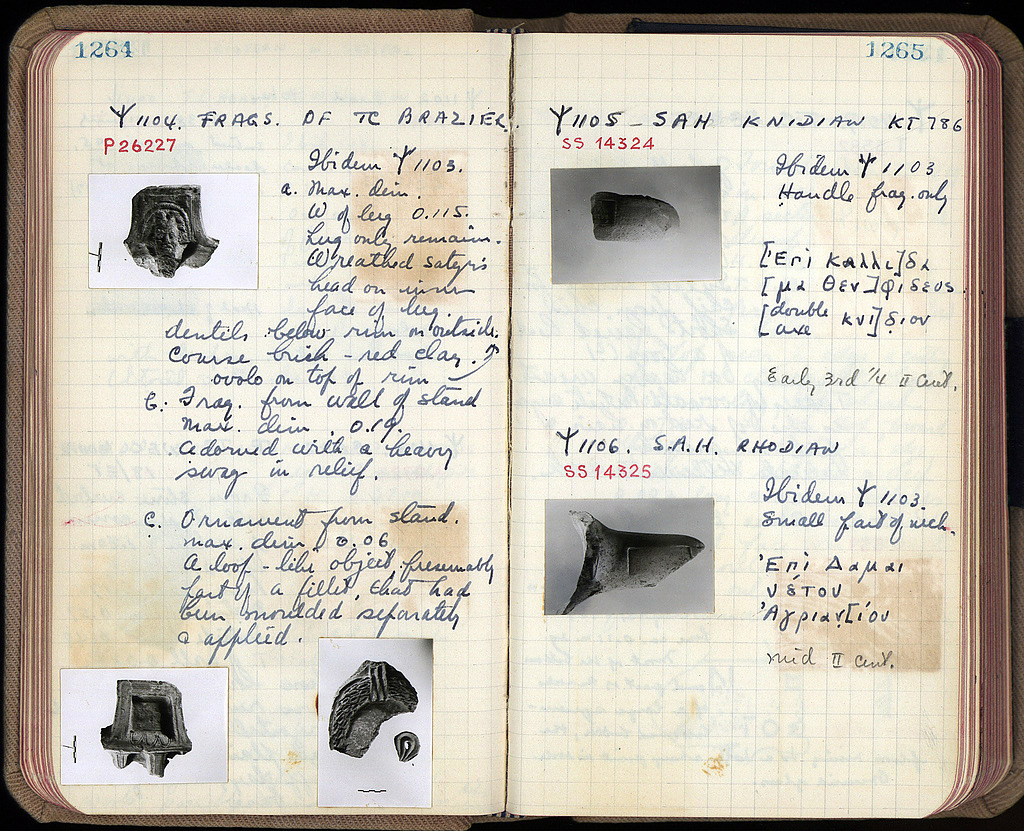 1264
Ψ 1104. FRAGS. OF TC BRAZIER.
P 26227
Ibidem Ψ 1103.
a. Max. dim.
W of leg 0.115.
Lug only remains.
Wreathed satyr's
head on inner
face of lug.
dentils below rim on outside.
Coarse brick-red clay.
ovolo on top of rim
b. Frag. from wall of stand
max. dim. 0.19.
adorned with a heavy
swag in relief.
c. Ornament from stand.
max. dim. 0.06
A loof-like object presumably
part of a fillet, that had
been moulded separately
& applied.
1265
Ψ 1105 - SAH KNIDIAN KT 786
SS 14324
Ibidem Ψ 1103
Handle frag. only
[Ἐπὶ Καλλι]δά
[μα Θεν]φίδευς.
[double axe Κνί]διον
Early 3rd 1/4 II Cent.
Ψ 1106. S.A.H. RHODIAN
SS 14325
Ibidem Ψ 1103.
Small part of neck.
Ἐπὶ Δαμαι
νέτου
Ἀγριαν[ίου
mid II cent.